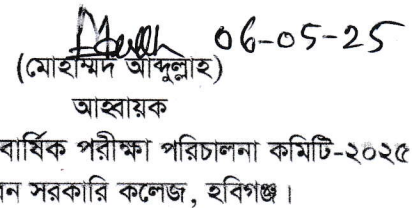 06-05-25
(মোহাম্মদ আব্দুল্লাহ)
আহ্বায়ক
বার্ষিক পরীক্ষা পরিচালনা কমিটি-২০২৫
ন সরকারি কলেজ, হবিগঞ্জ।